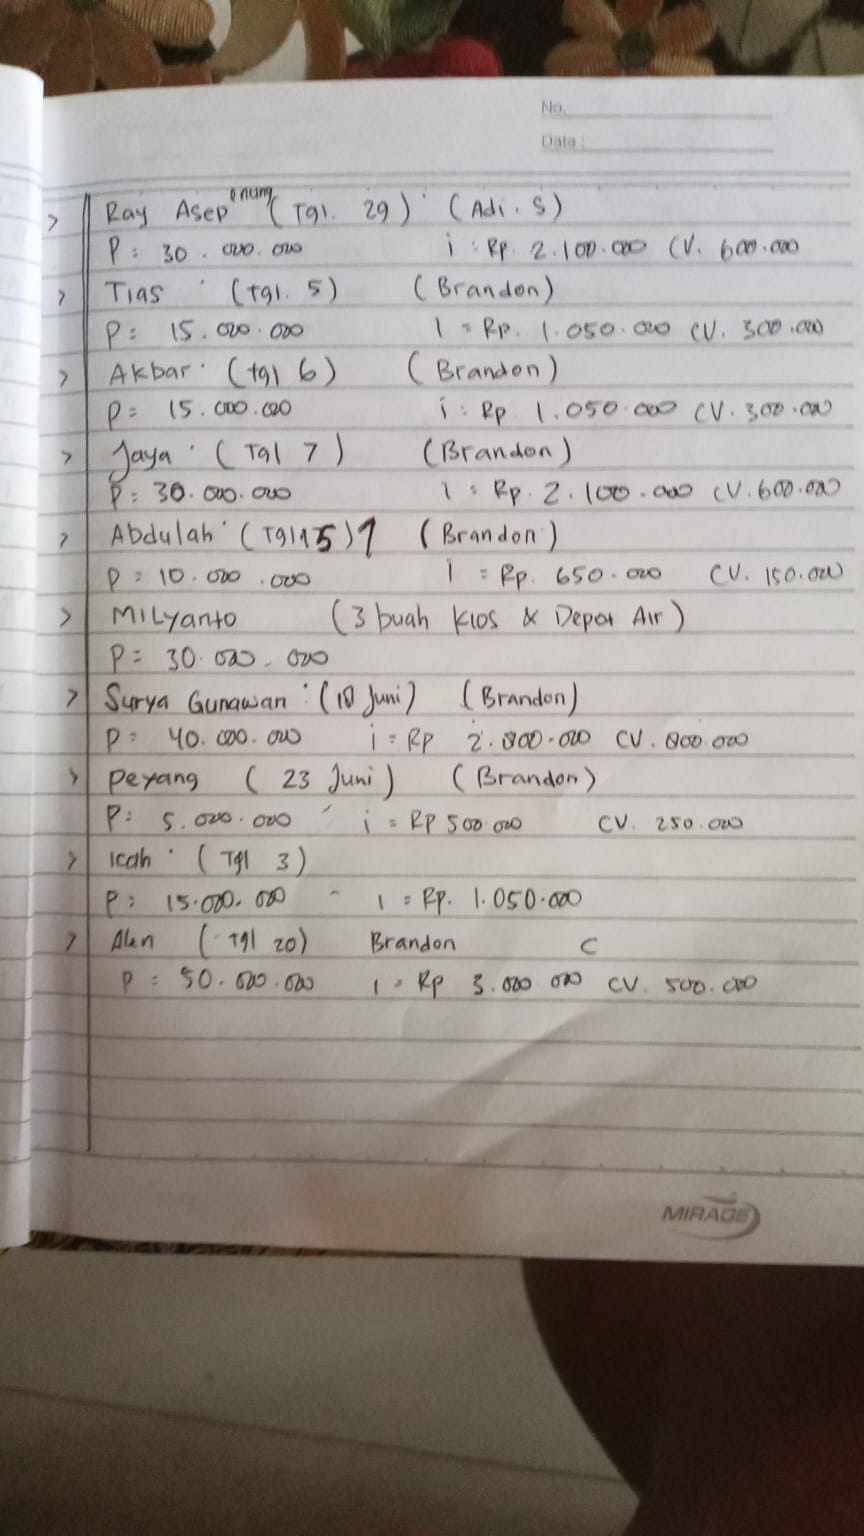 No.
Date :
> Ray Asep onung (Tgl. 29) (Adi. S)
P = 30.000.000 i : Rp. 2.100.000 CV. 600.000
> Tias (tgl. 5) (Brandon)
P = 15.000.000 I = Rp. 1.050.000 CV. 300.000
> Akbar (tgl 6) (Brandon)
P = 15.000.000 i : Rp 1.050.000 CV. 300.000
> Jaya (Tgl 7) (Brandon)
P : 30.000.000 I : Rp. 2.100.000 CV. 600.000
> Abdulah (Tgl 15) (Brandon)
P = 10.000.000 I = Rp. 650.000 CV. 150.000
> MILyanto (3 buah Kios & Depot Air)
P = 30.000.000
> Surya Gunawan : (18 Juni) (Brandon)
P = 40.000.000 i = Rp 2.800.000 CV. 800.000
> Peyang (23 Juni) (Brandon)
P : 5.000.000 i = Rp 500.000 CV. 250.000
> Icah (Tgl 3)
P : 15.000.000 - I = Rp. 1.050.000
> Alen (Tgl 20) Brandon C
P = 50.000.000 I = Rp 3.000.000 CV. 500.000
MIRAGE